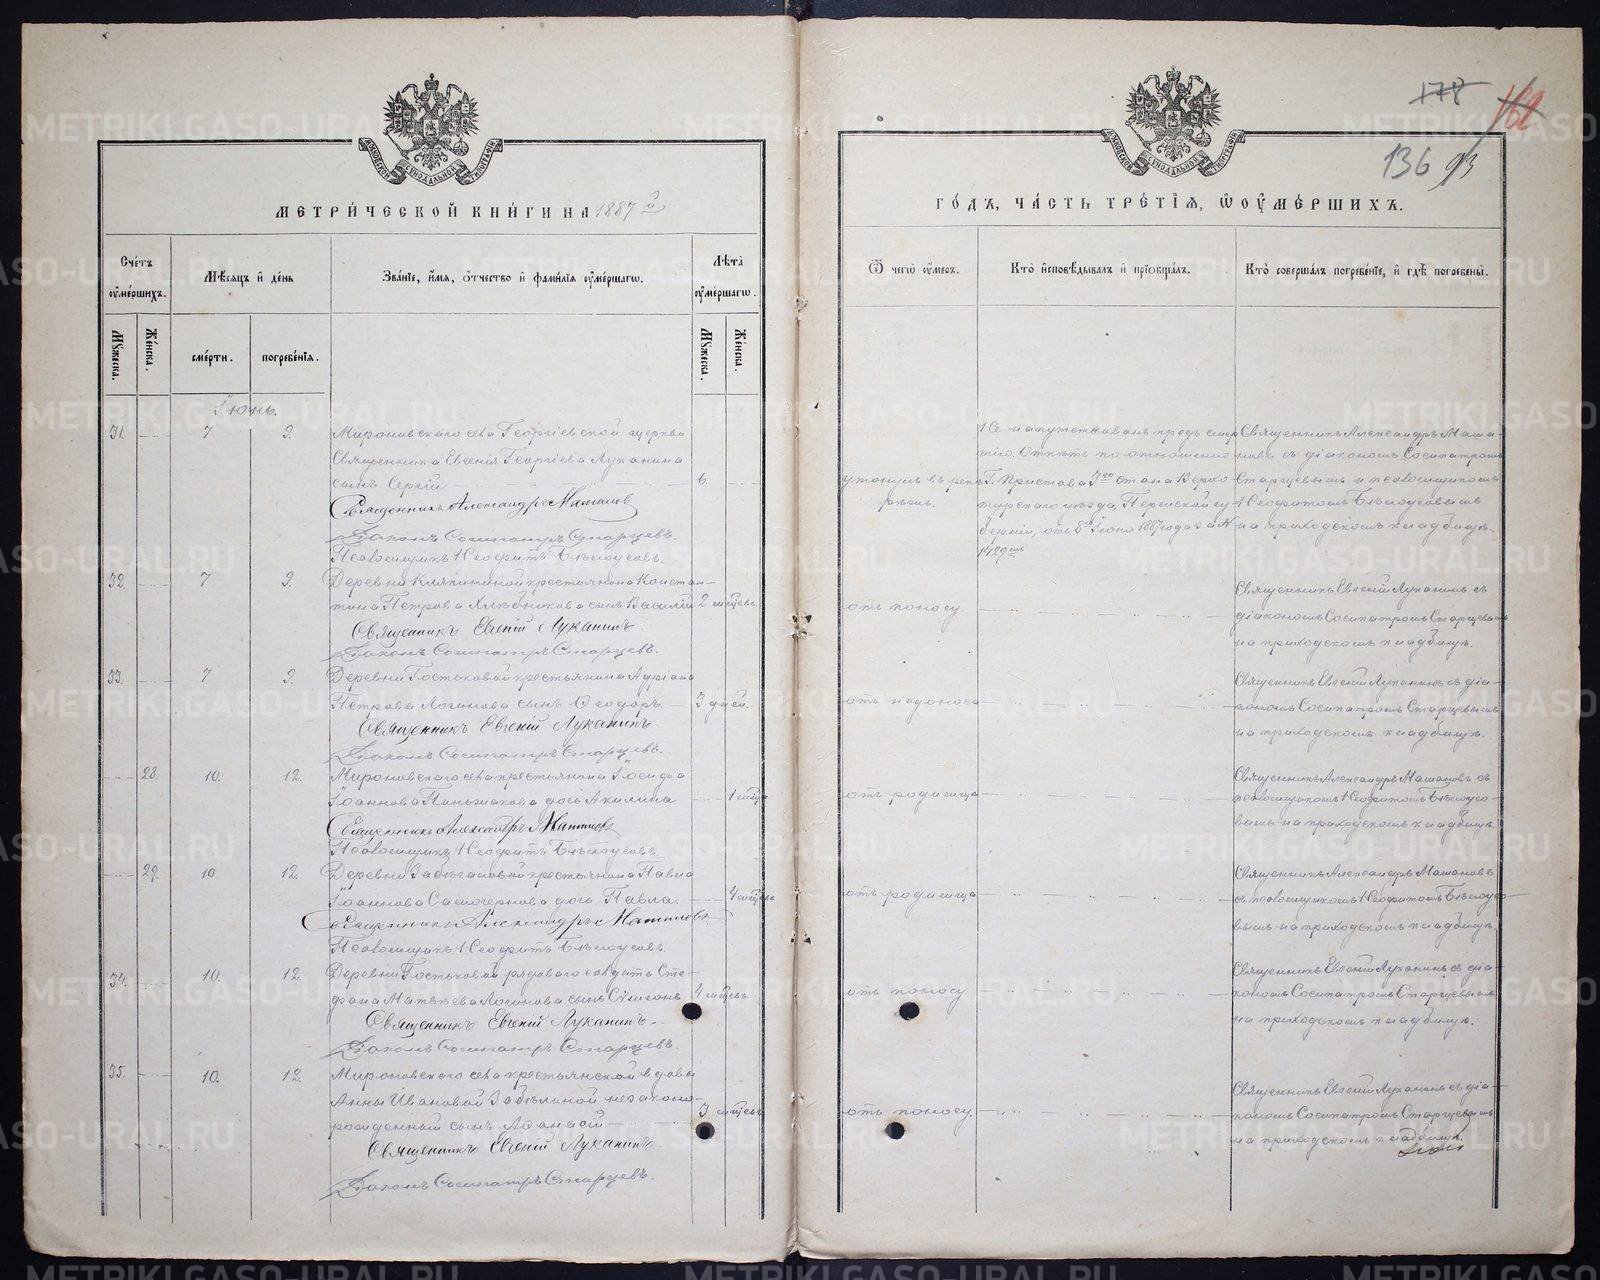 МЕТРИ́ЧЕСКОЙ КНИ́ГИ НА 1887 й
Сче́тъ оумѐршихъ.
Мѣ́сяцъ и де́нь
Зва́нїе, и́мя, о́тчество и фами́лїя оумѐршагѡ.
Лѣта̀ оумѐршагѡ.
Му́жеска.
Же́нска.
сме́рти.
погребе́нїя.
Му́жеска.
Же́нска.
Іюнь.
31. 7 9. Мироновскаго села Георгіевской церкви
Священника Евгенія Георгіева Луканина
сынъ Сергій 6.
Священникъ Александръ Машановъ
Діаконъ Сосипатръ Старцевъ.
Псаломщикъ Неофитъ Бѣлоусовъ.
32. 7 9. Деревни крестьянина Констан-
тина Петрова Хлѣбникова сынъ Василій 2 мѣсяц.
Священникъ Евгеній Луканинъ.
Діаконъ Сосипатръ Старцевъ.
33. 7 9. Деревни Гостьковой крестьянина Адріана
Петрова Логинова сынъ Ѳеодоръ. 3 дней.
Священникъ Евгеній Луканинъ
Діаконъ Сосипатръ Старцевъ.
28. 10. 12. Мироновскаго села крестьянина Іосифа
Іоаннова дочь Акилина 1 мѣсяц
Священникъ Александръ Машановъ
Псаломщикъ Неофитъ Бѣлоусовъ.
29. 10 12. Деревни крестьянина Павла
Іоаннова дочь Павла. 4 мѣсяц
Священникъ Александръ Машановъ.
Псаломщикъ Неофитъ Бѣлоусовъ.
34. 10. 12. Деревни Гостьковой рядоваго солдата Сте-
фана Матвѣева Логинова сынъ Сѵмеонъ 4 мѣсяц.
Священникъ Евгеній Луканинъ.
Діаконъ Сосипатръ Старцевъ.
35. 10. 12. Мироновскаго села крестьянской вдовы
Анны Ивановой незаконно-
рожденный сынъ Аѳанасій 3 мѣсяц
Священникъ Евгеній Луканинъ.
Діаконъ Сосипатръ Старцевъ.
178
162
136 93
ГО́ДЪ, ЧА́СТЬ ТРЕ́ТІЯ, Ѡ ОУМЕ́РШИХЪ.
Ѿ чегѡ̀ оумеръ.
Кто̀ исповѣ́дывалъ и прїобща́лъ.
Кто̀ соверша́лъ погребе́нїе, и гдѣ̀ погребены̀.
утонулъ въ рекѣ
Не напутствованъ предъ смер-
тію. Отпѣтъ по отношенію
Г. Пристава 3го стана Верхо-
турскаго уѣзда, Пермской гу-
берніи, отъ 8го Іюня 1887 года за №
1429мъ
Священникъ Александръ Маша-
новъ съ діакономъ Сосипатромъ
Старцевымъ и псаломщикомъ
Неофитомъ Бѣлоусовымъ
на приходскомъ кладбищѣ.
отъ поносу.
Священникъ Евгеній Луканинъ съ
діакономъ Сосипатромъ Старцевымъ
на приходскомъ кладбищѣ.
отъ недоноса
Священникъ Евгеній Луканинъ съ діа-
кономъ Сосипатромъ Старцевымъ
на приходскомъ кладбищѣ.
отъ родимца
Священникъ Александръ Машановъ съ
псаломщикомъ Неофитомъ Бѣлоусо-
вымъ на приходскомъ кладбищѣ.
отъ родимца
Священникъ Александръ Машановъ
съ псаломщикомъ Неофитомъ Бѣлоусо-
вымъ на приходскомъ кладбищѣ.
отъ поносу
Священникъ Евгеній Луканинъ съ діа-
кономъ Сосипатромъ Старцевымъ
на приходскомъ кладбищѣ.
отъ поносу.
Священникъ Евгеній Луканинъ съ діа-
кономъ Сосипатромъ Старцевымъ
на приходскомъ кладбищѣ.
METRIKI.GASO-URAL.RU